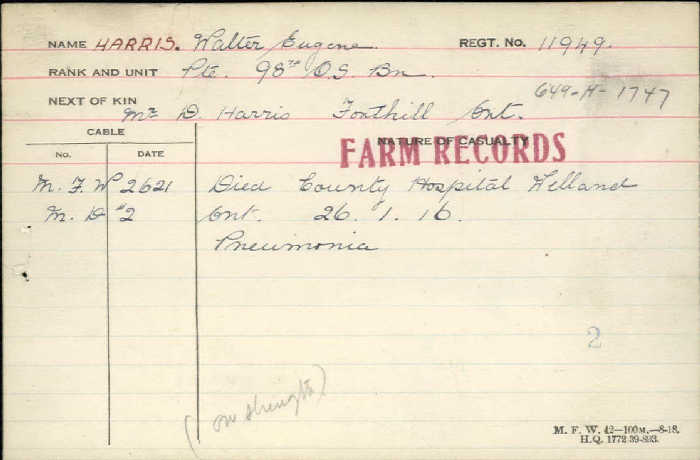 NAME HARRIS. Walter Eugene REGT. NO. 11949.
RANK AND UNIT Pte. 98th O.S. Bn.
649-H-1747
NEXT OF KIN Mr D. Harris Fonthill Ont.
CABLE NATURE OF CASUALTY
FARM RECORDS
NO. DATE
M. F. W 2621 Died County Hospital Welland
M. D #2 Ont. 26. 1. 16.
Pneumonia
2
(on strength)
M. F. W. 42—100M.—8-18.
H.Q. 1772-39-893.